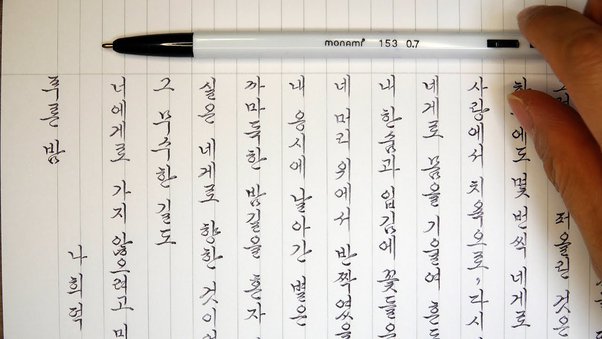 monami 153 0.7
푸른 밤
나희덕
너에게로 가지 않으려고 미
그 무수한 길도
실은 네게로 향한 것이
까마득한 밤길을 혼자
내 응시에 날아간 별은
네 머리 위에서 반짝였을
내 한숨과 입김에 꽃들은
네게로 몸을 기울여 흔들
사랑에서 치욕으로, 다시
몇 번씩 네게로
퍼올린 것은